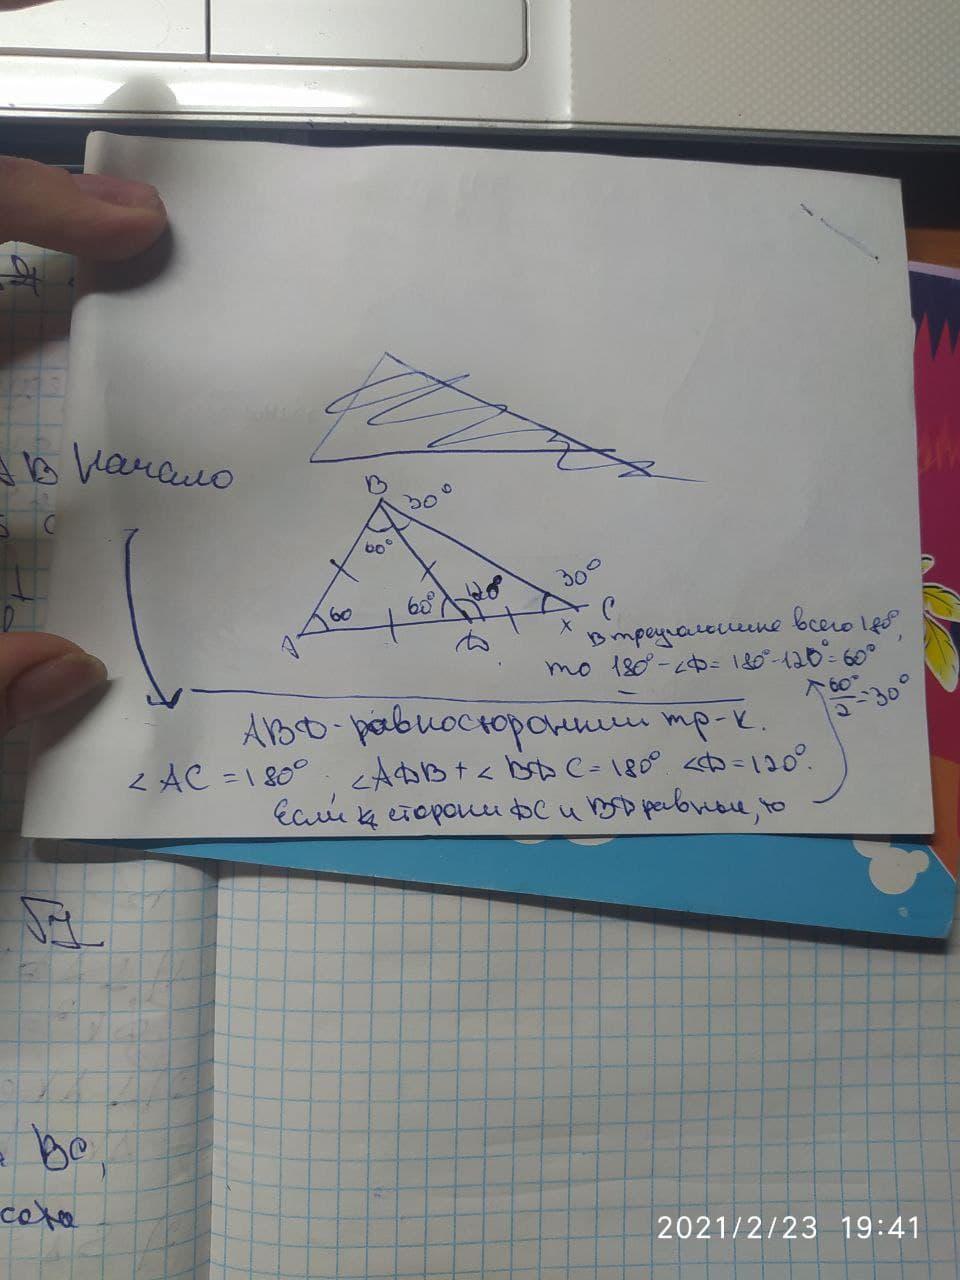 начало
B
30°
60°
60
60°
120°
30°
A
D
x
C
В треугольнике всего 180°,
то 180° - ∠D = 180° - 120° = 60°
60°/2 = 30°
ABD - равносторонний тр-к.
∠AC = 180°; ∠ADB + ∠BDC = 180° ∠D = 120°.
Если стороны DC и BD равны, то
BC,
2021/2/23 19:41